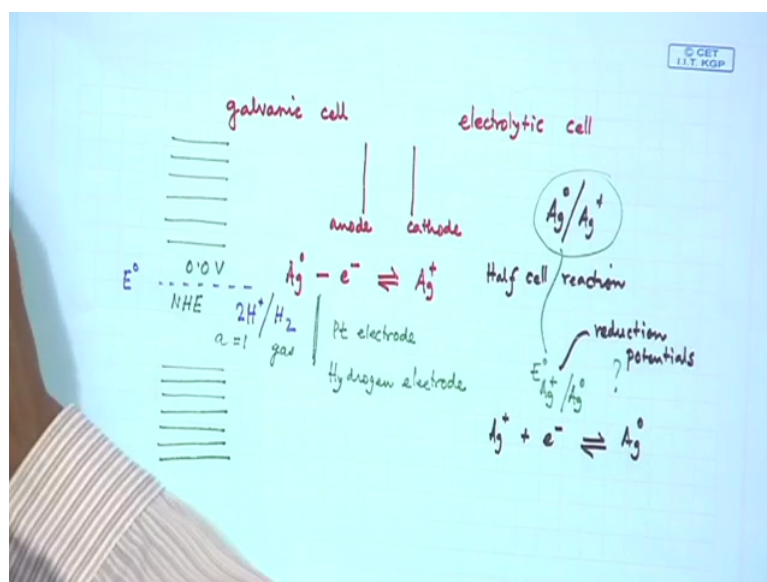 © CET
I.I.T. KGP
galvanic cell
electrolytic cell
anode cathode
Ag⁰/Ag⁺
E⁰
0.0 V
Ag⁰ - e⁻ ⇌ Ag⁺
Half cell reaction
NHE
2H⁺/H₂
a = 1
gas
Pt electrode
Hydrogen electrode
reduction
potentials
E⁰ Ag⁺/Ag⁰
?
Ag⁺ + e⁻ ⇌ Ag⁰